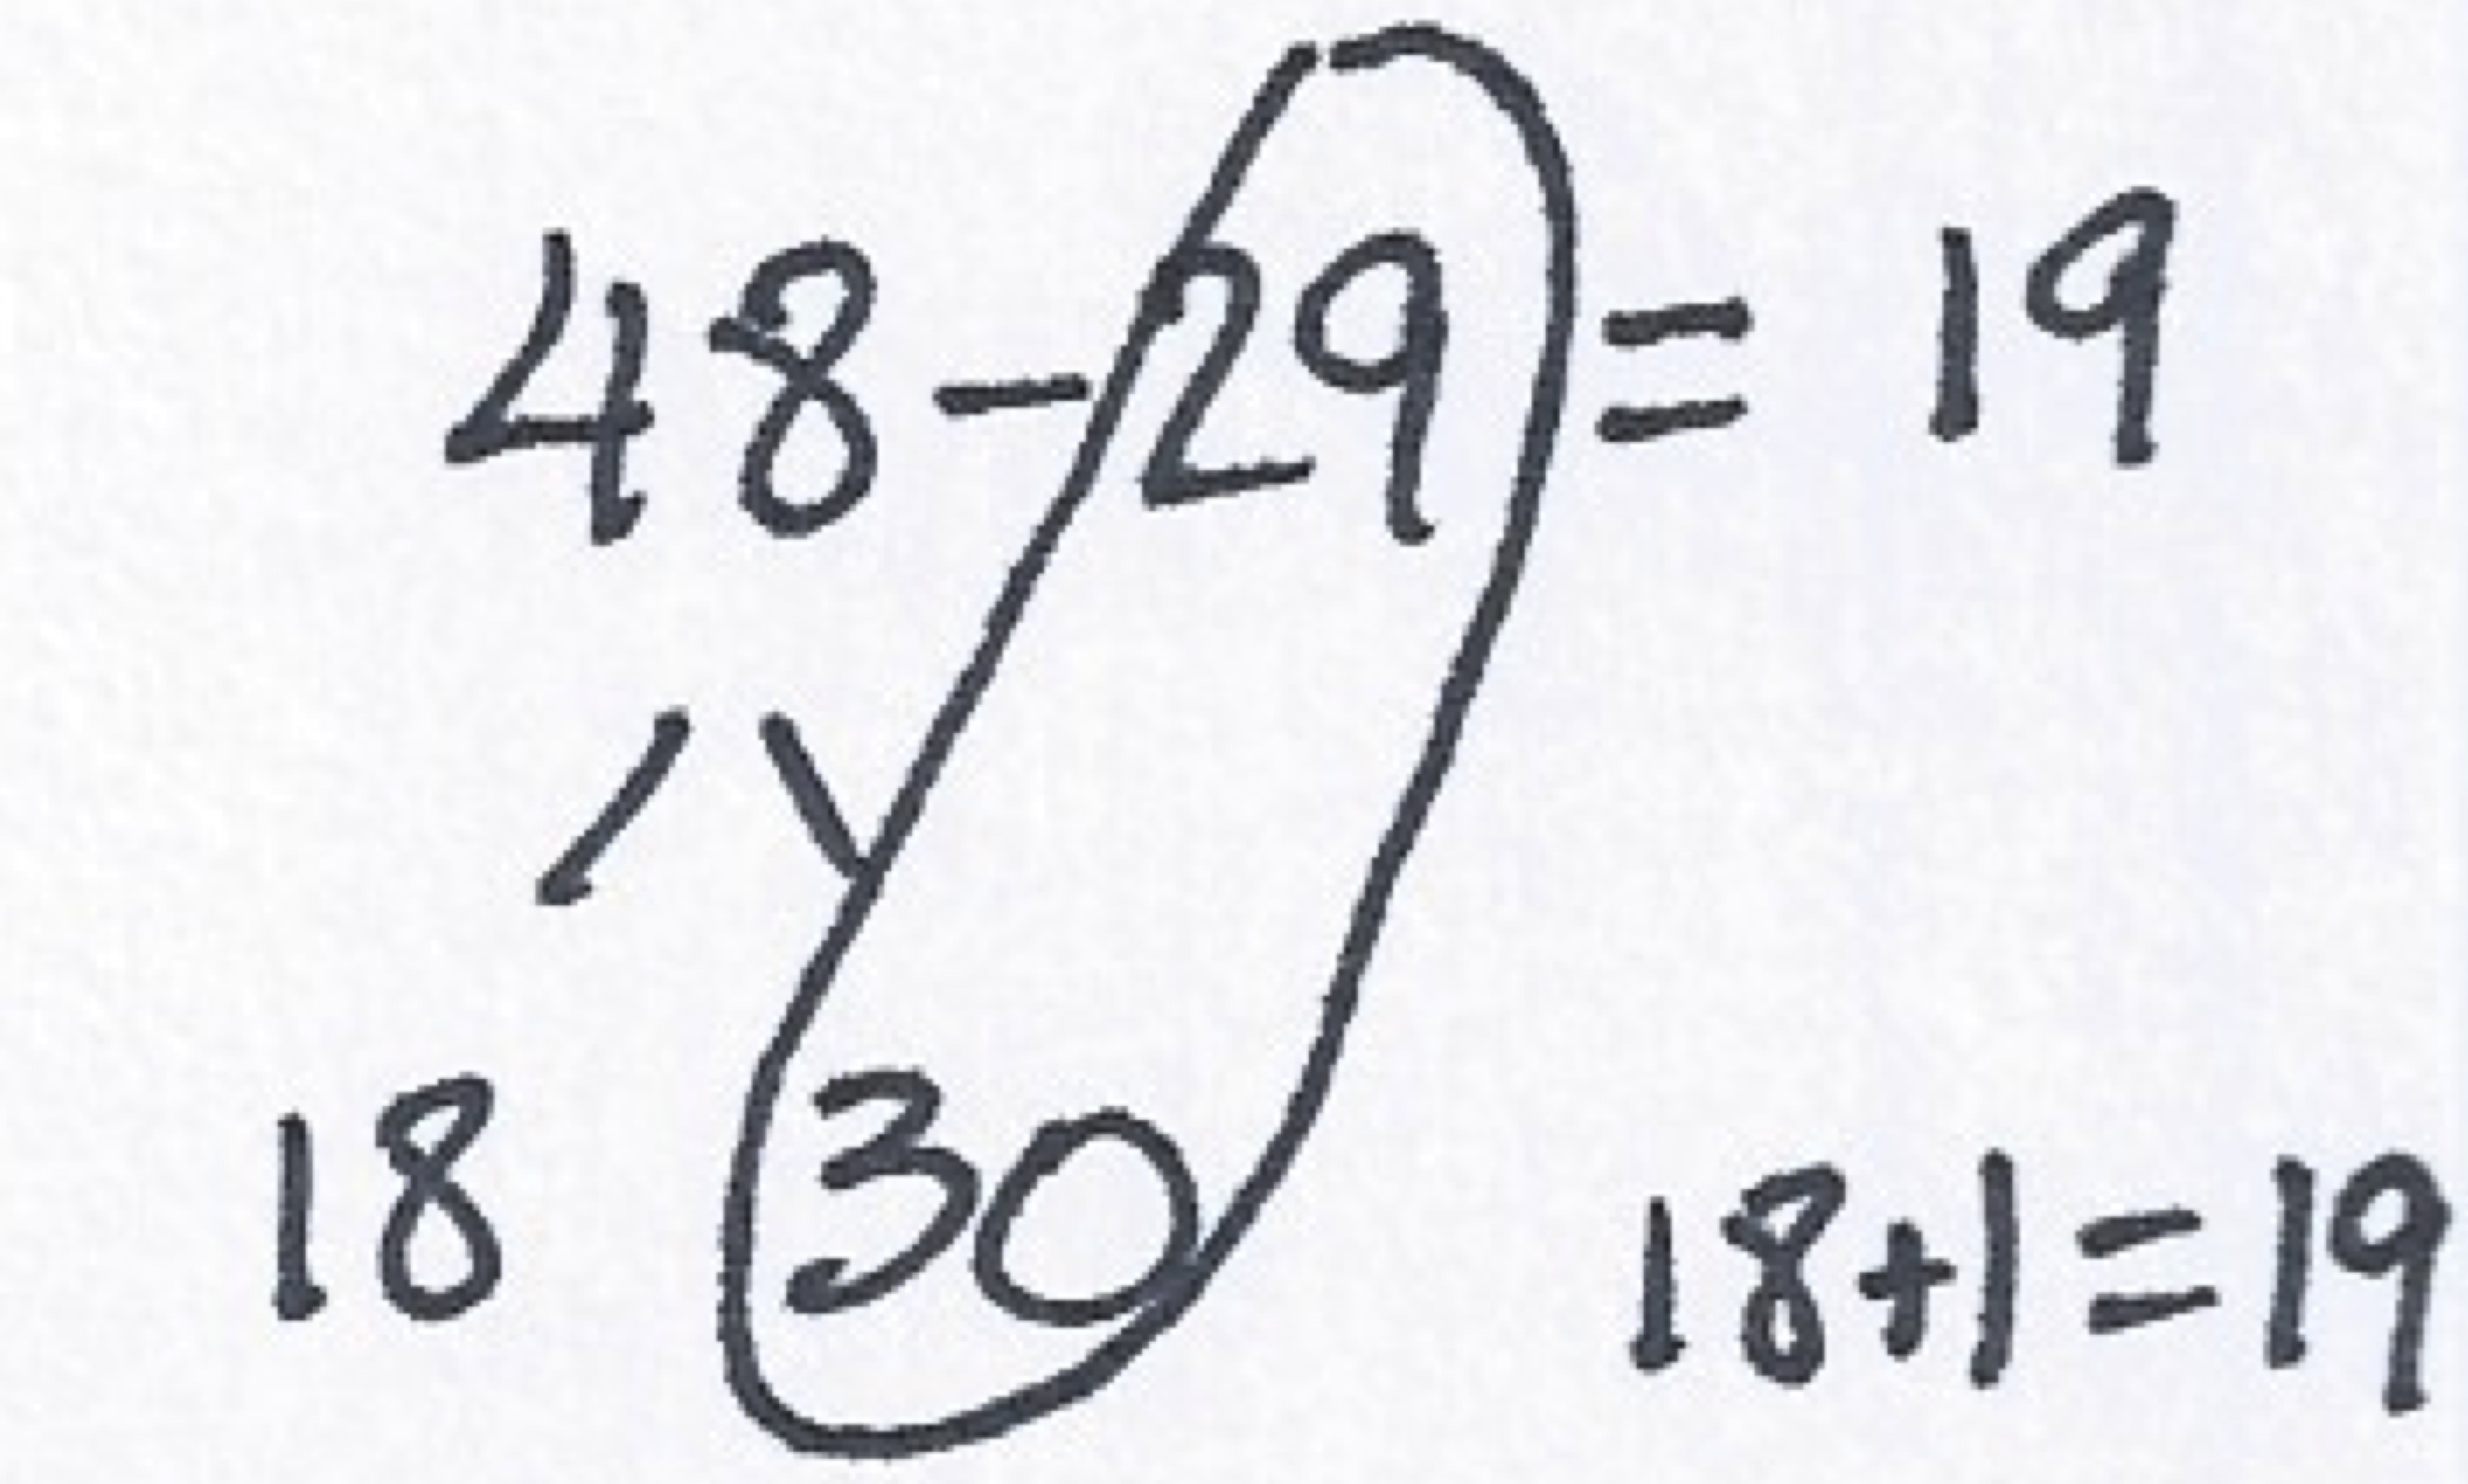 48-29 = 19
18 30 18+1=19